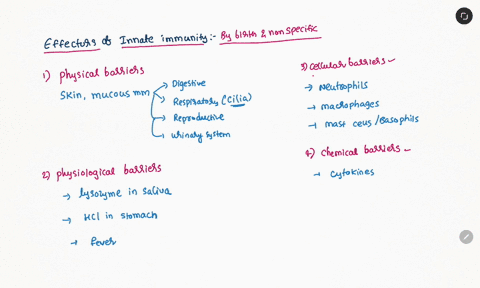 Effectors of Innate immunity:- By birth & non specific
1) physical barriers
Skin, mucous mm
→ Digestive
→ Respiratory (cilia)
→ Reproductive
→ urinary system
2) physiological barriers
→ lysozyme in saliva
→ HCl in stomach
→ fever
3) cellular barriers
→ Neutrophils
→ macrophages
→ mast cells / Basophils
4) chemical barriers
→ cytokines